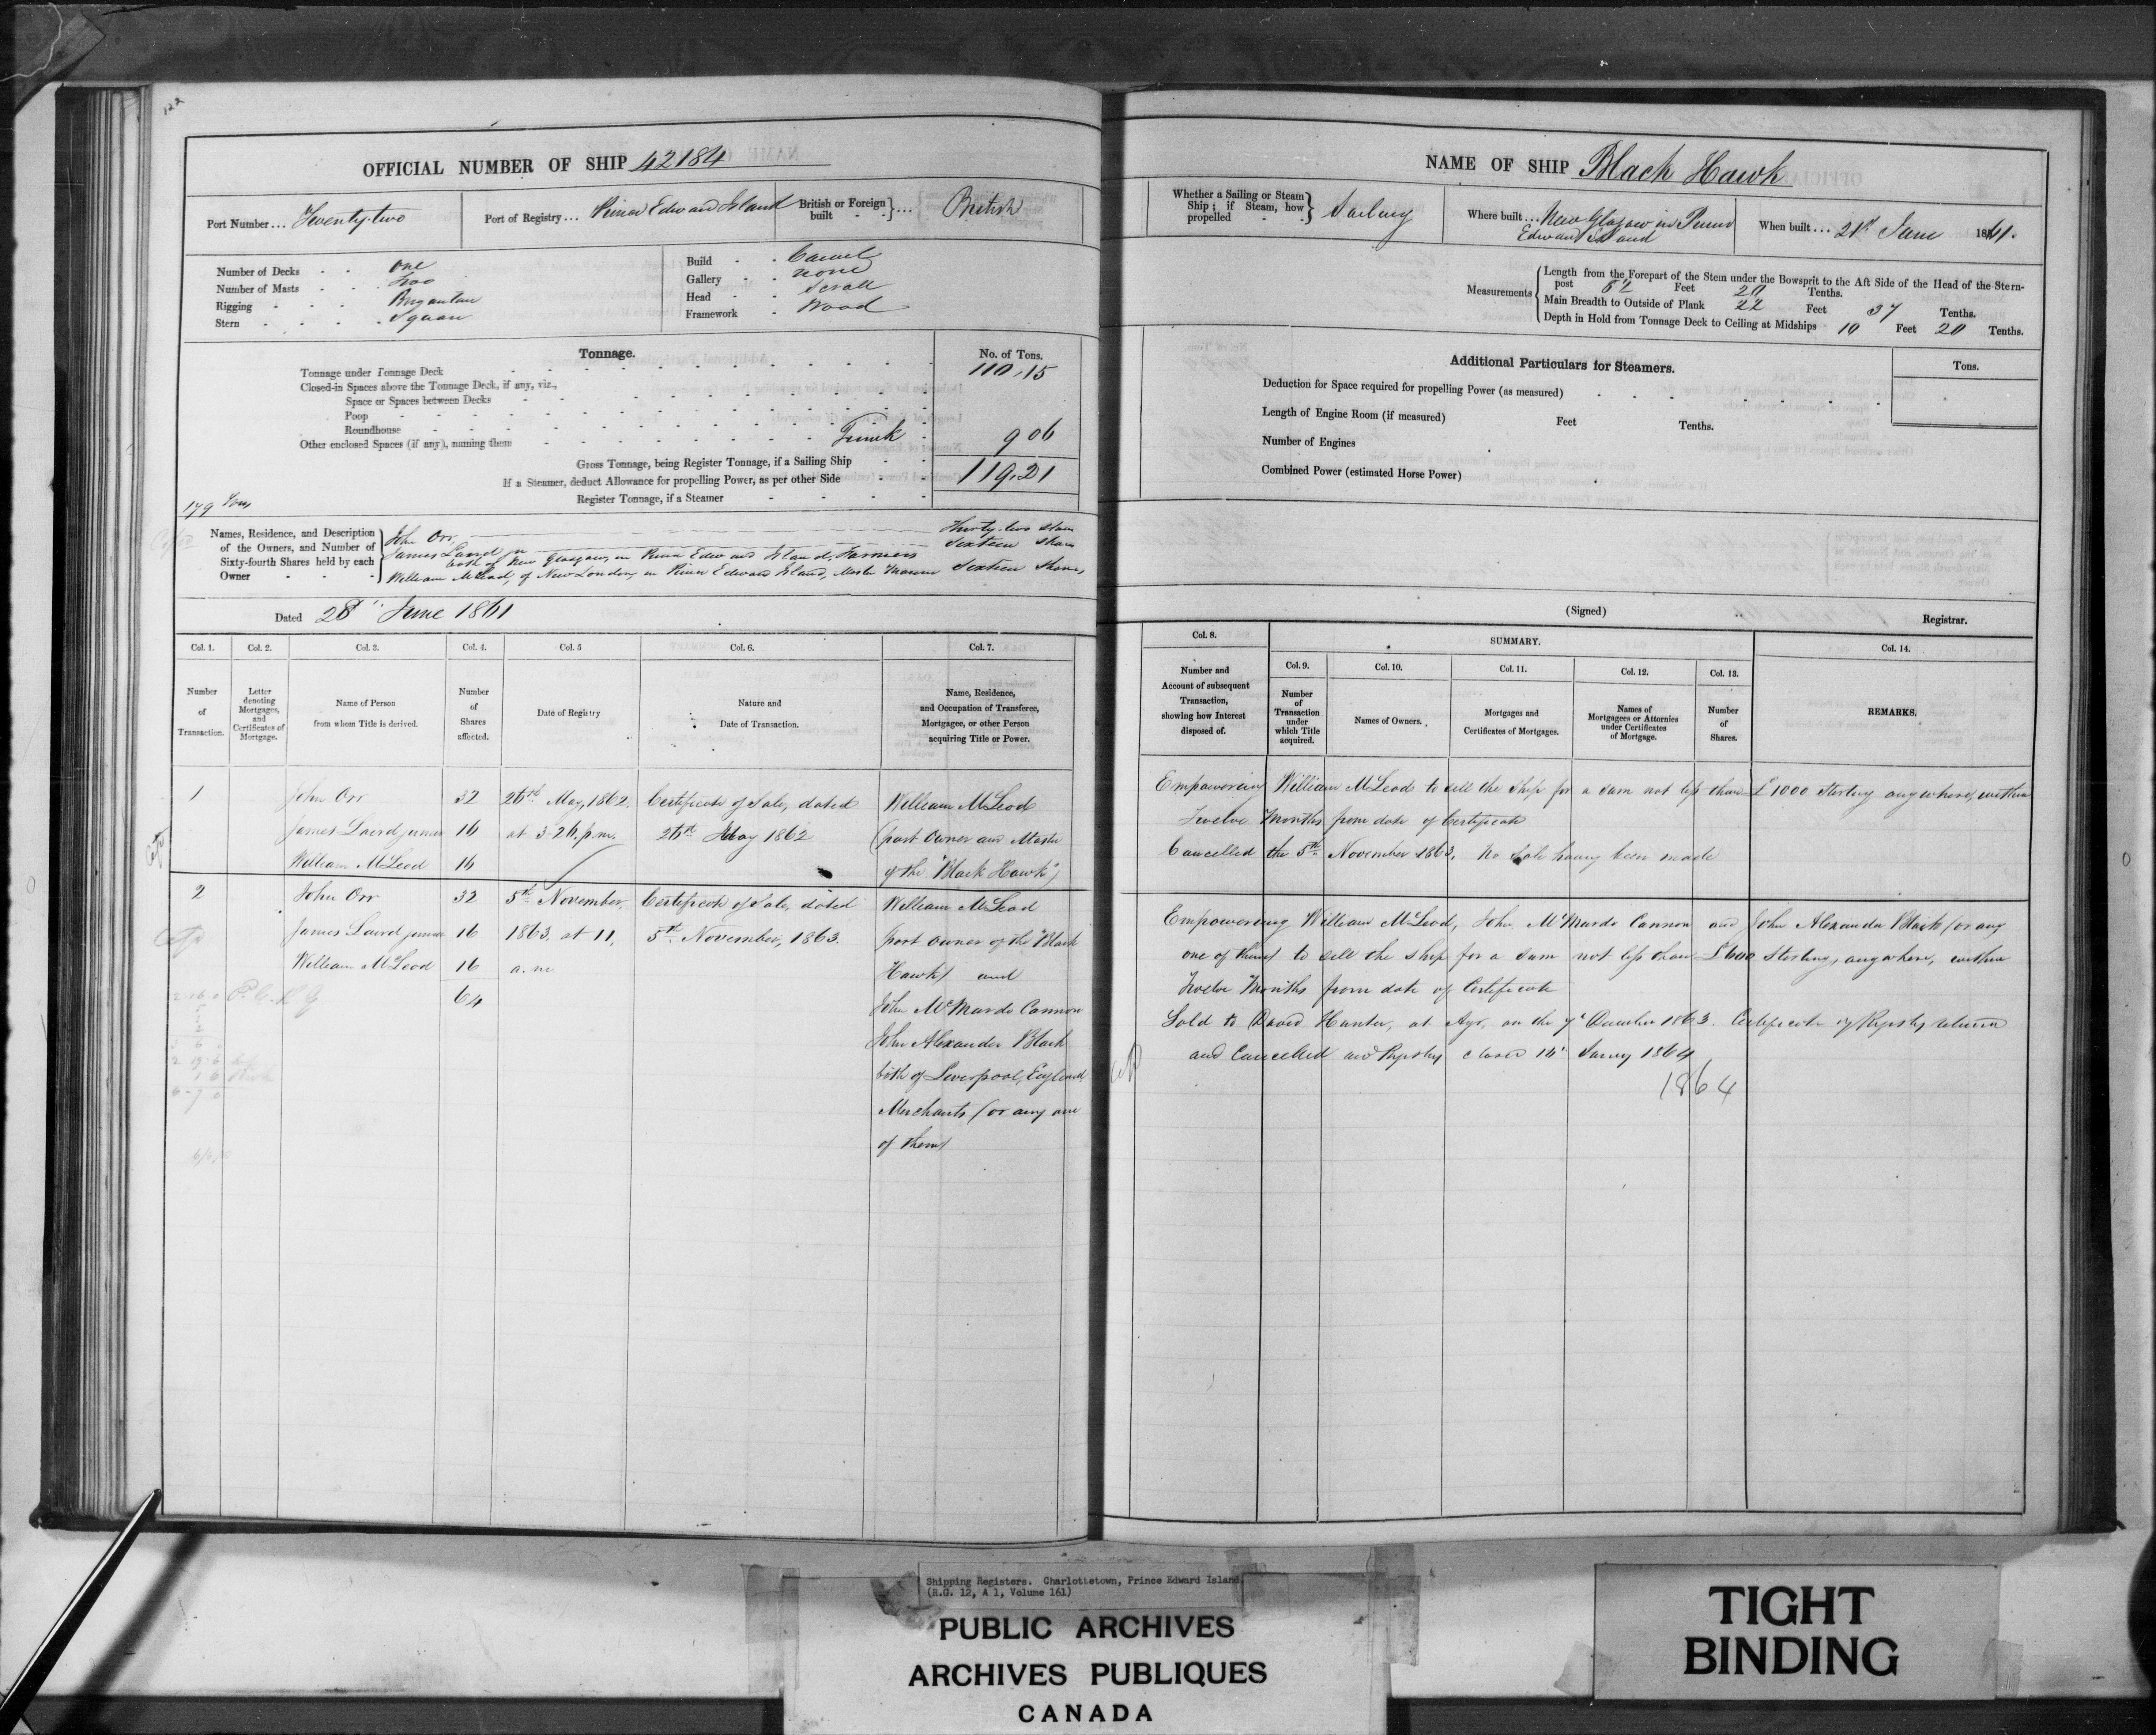 122
OFFICIAL NUMBER OF SHIP 42184
Port Number... Twenty-two
Port of Registry... Prince Edward Island
British or Foreign built } ... British
Number of Decks - - One
Number of Masts - - Two
Rigging - - - Brigantine
Stern - - - Square
Build - - Carvel
Gallery - - None
Head - - Scroll
Framework - Wood
Tonnage.
No. of Tons.
Tonnage under Tonnage Deck 110.15
Closed-in Spaces above the Tonnage Deck, if any, viz.,
Space or Spaces between Decks
Poop
Roundhouse
Other enclosed Spaces (if any), naming them Trunk 9 06
Gross Tonnage, being Register Tonnage, if a Sailing Ship 119.21
If a Steamer, deduct Allowance for propelling Power, as per other Side
Register Tonnage, if a Steamer
179 Tons
Names, Residence, and Description of the Owners, and Number of Sixty-fourth Shares held by each Owner
John Orr, Thirty-two Shares
James Laird jn Sixteen Shares
both of New Glasgow, in Prince Edward Island, Farmers
William McLeod, of New London, in Prince Edward Island, Master Mariner Sixteen Shares
Dated 28th June 1861
Col. 1. Col. 2. Col. 3. Col. 4. Col. 5 Col. 6. Col. 7.
Number of Transaction.
Letter denoting Mortgages, and Certificates of Mortgage.
Name of Person from whom Title is derived.
Number of Shares affected.
Date of Registry
Nature and Date of Transaction.
Name, Residence, and Occupation of Transferee, Mortgagee, or other Person acquiring Title or Power.
1 John Orr 32 26th May, 1862, Certificate of Sale, dated William McLeod
James Laird junior 16 at 3-26. p.m. 26th May 1862 (part Owner and Master
William McLeod 16 of the "Black Hawk")
2 John Orr 32 5th November, Certificate of Sale, dated William McLeod
James Laird junior 16 1863, at 11, 5th November, 1863. part owner of the "Black
William McLeod 16 a.m. Hawk) and
64 John McMurdo Cannon
John Alexander Black
both of Liverpool, England,
Merchants (or any one
of them)
NAME OF SHIP Black Hawk
Whether a Sailing or Steam Ship; if Steam, how propelled } Sailing
Where built ... New Glasgow in Prince Edward Island
When built ... 21st June 1861.
Measurements
Length from the Forepart of the Stem under the Bowsprit to the Aft Side of the Head of the Sternpost 82 Feet 20 Tenths.
Main Breadth to Outside of Plank 22 Feet 37 Tenths.
Depth in Hold from Tonnage Deck to Ceiling at Midships 10 Feet 20 Tenths.
Additional Particulars for Steamers.
Tons.
Deduction for Space required for propelling Power (as measured)
Length of Engine Room (if measured) Feet Tenths.
Number of Engines
Combined Power (estimated Horse Power)
(Signed) Registrar.
Col. 8. SUMMARY. Col. 14.
Col. 9. Col. 10. Col. 11. Col. 12. Col. 13.
Number and Account of subsequent Transaction, showing how Interest disposed of.
Number of Transaction under which Title acquired.
Names of Owners.
Mortgages and Certificates of Mortgages.
Names of Mortgagees or Attornies under Certificates of Mortgage.
Number of Shares.
REMARKS.
Empowering William McLeod to sell the Ship for a sum not less than £1000 Sterling anywhere, within
Twelve Months from date of Certificate
Cancelled the 5th November 1863, no sale having been made
Empowering William McLeod, John McMurdo Cannon and John Alexander Black (or any
one of them) to sell the ship for a sum not less than £600 Sterling, anywhere, within
Twelve Months from date of Certificate
Sold to David Hunter, at Ayr, on the 7th December 1863. Certificate of Registry returned
and Cancelled and Registry closed 14th Jan'y 1864
1864
Shipping Registers. Charlottetown, Prince Edward Island.
(R.G. 12, A 1, Volume 161)
PUBLIC ARCHIVES
ARCHIVES PUBLIQUES
CANADA
TIGHT
BINDING